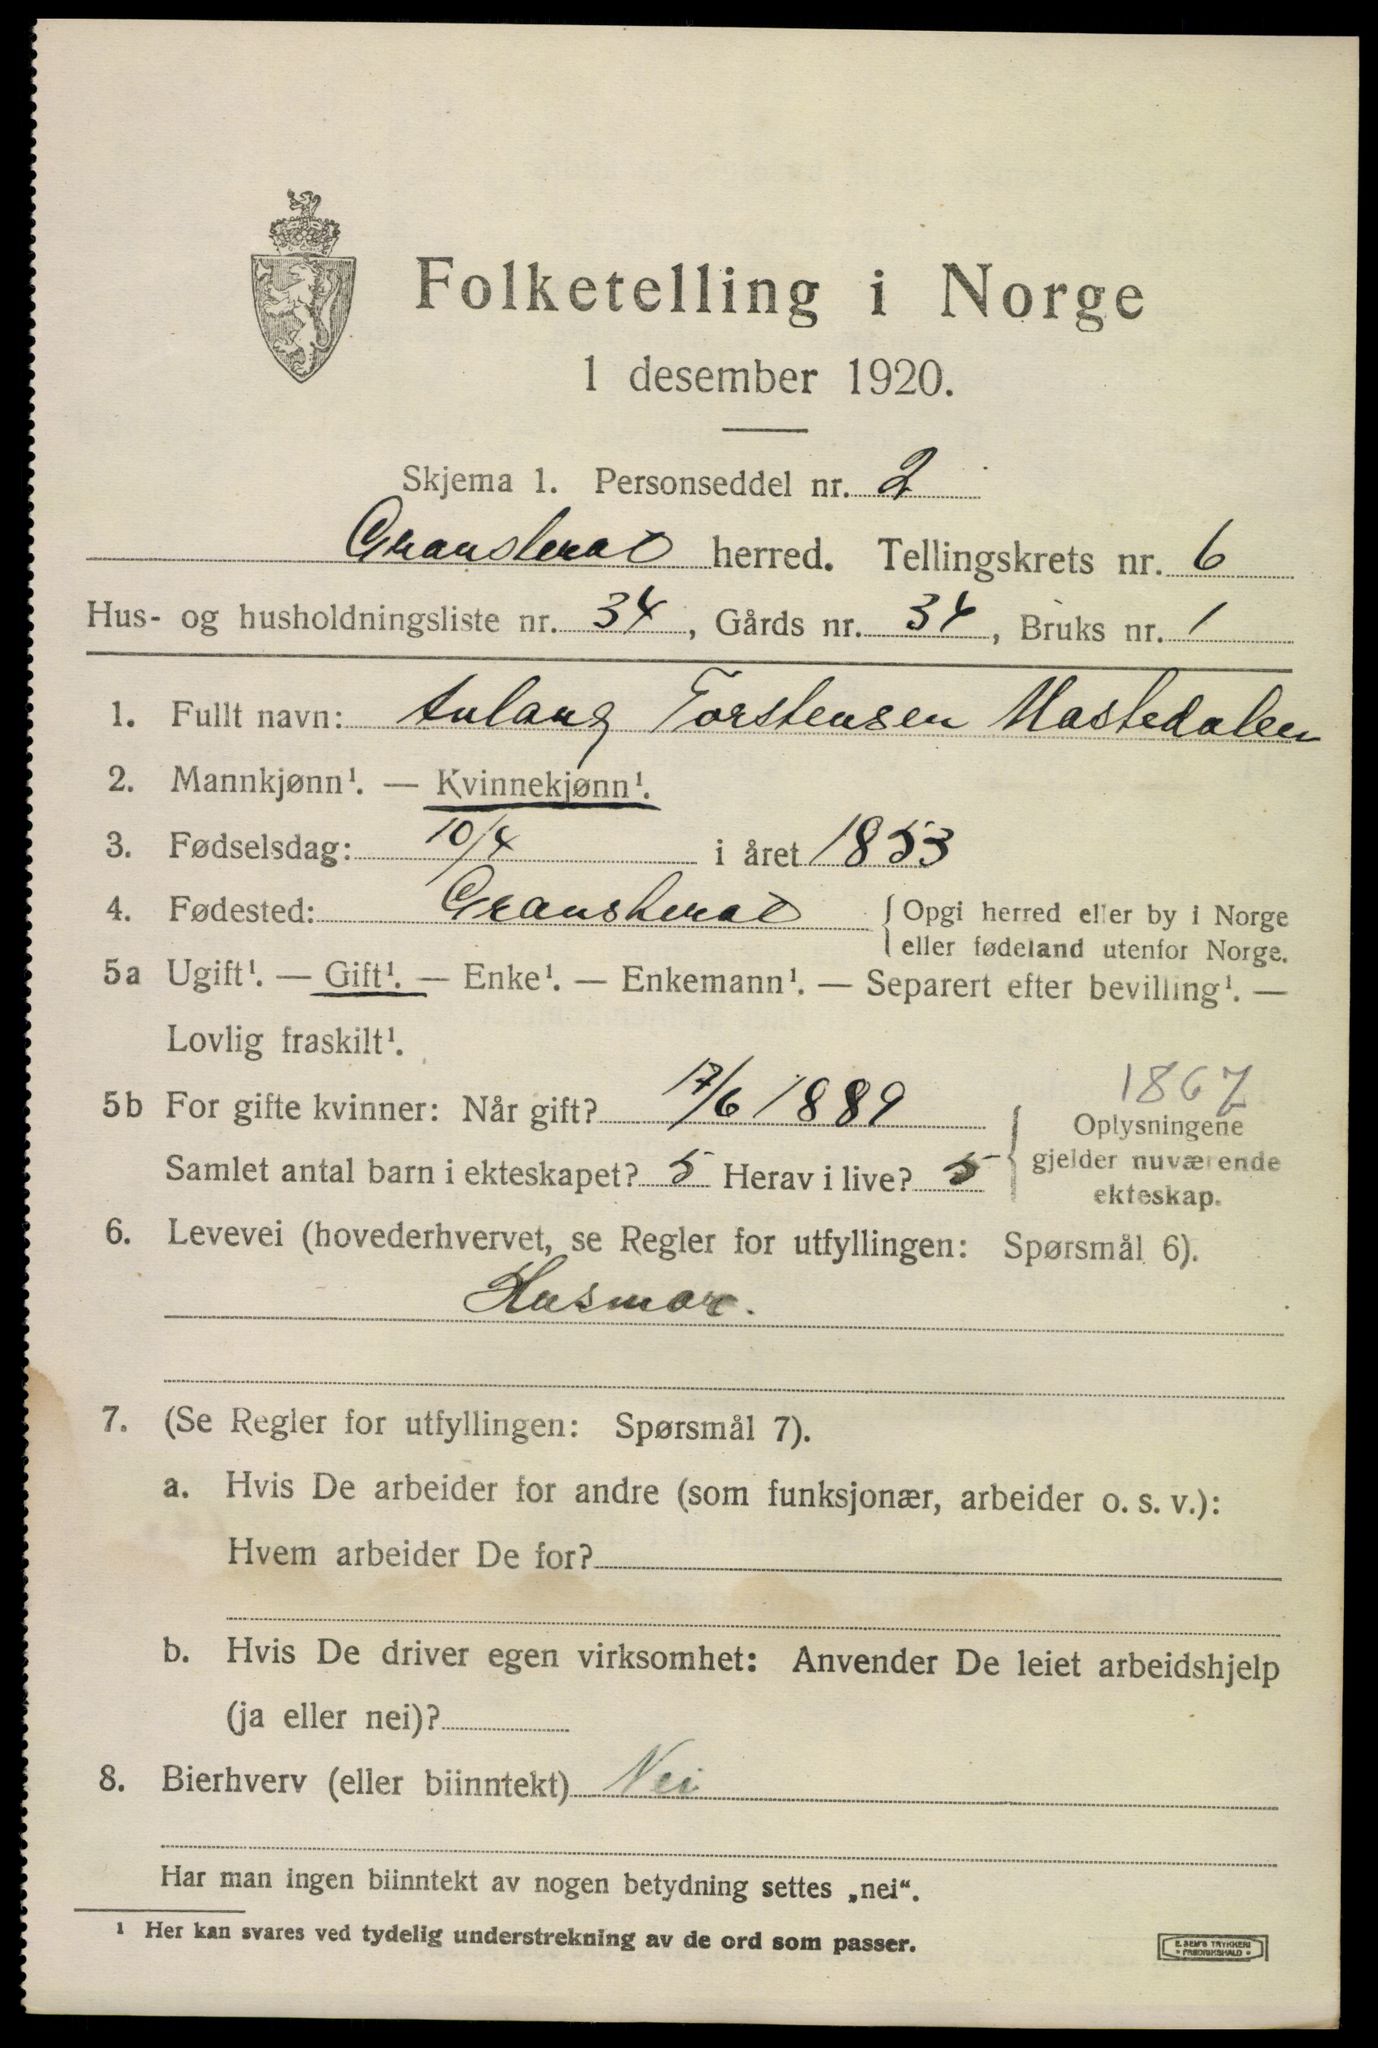 Folketelling i Norge
1 desember 1920.
Skjema 1. Personseddel nr. 2
Gransherad herred. Tellingskrets nr. 6
Hus- og husholdningsliste nr. 34, Gårds nr. 34, Bruks nr. 1
1. Fullt navn: Aslaug Torstensen Mastedalen
2. Mannkjønn¹. — Kvinnekjønn¹.
3. Fødselsdag: 10/4 i året 1853
4. Fødested: Gransherad { Opgi herred eller by i Norge
eller fødeland utenfor Norge.
5a Ugift¹. — Gift¹. — Enke¹. — Enkemann¹. — Separert efter bevilling¹. —
Lovlig fraskilt¹.
1867
5b For gifte kvinner: Når gift? 17/6 1889 { Oplysningene
Samlet antal barn i ekteskapet? 5 Herav i live? 5 gjelder nuværende
ekteskap.
6. Levevei (hovederhvervet, se Regler for utfyllingen: Spørsmål 6).
Husmor.
7. (Se Regler for utfyllingen: Spørsmål 7).
a. Hvis De arbeider for andre (som funksjonær, arbeider o. s. v.):
Hvem arbeider De for?
b. Hvis De driver egen virksomhet: Anvender De leiet arbeidshjelp
(ja eller nei)?
8. Bierhverv (eller biinntekt) Nei
Har man ingen biinntekt av nogen betydning settes „nei“.
¹ Her kan svares ved tydelig understrekning av de ord som passer.
E. SEM'S TRYKKERI
FREDRIKSHALD